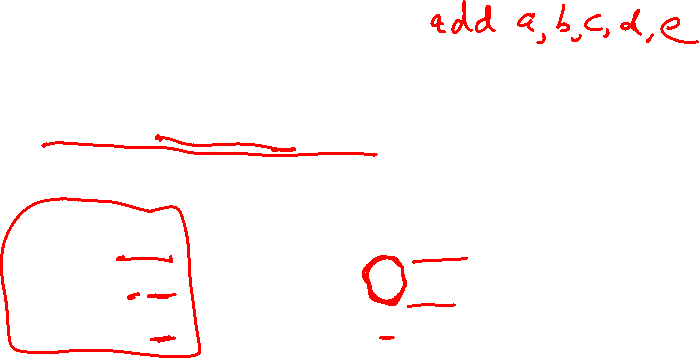 add a, b, c, d, e